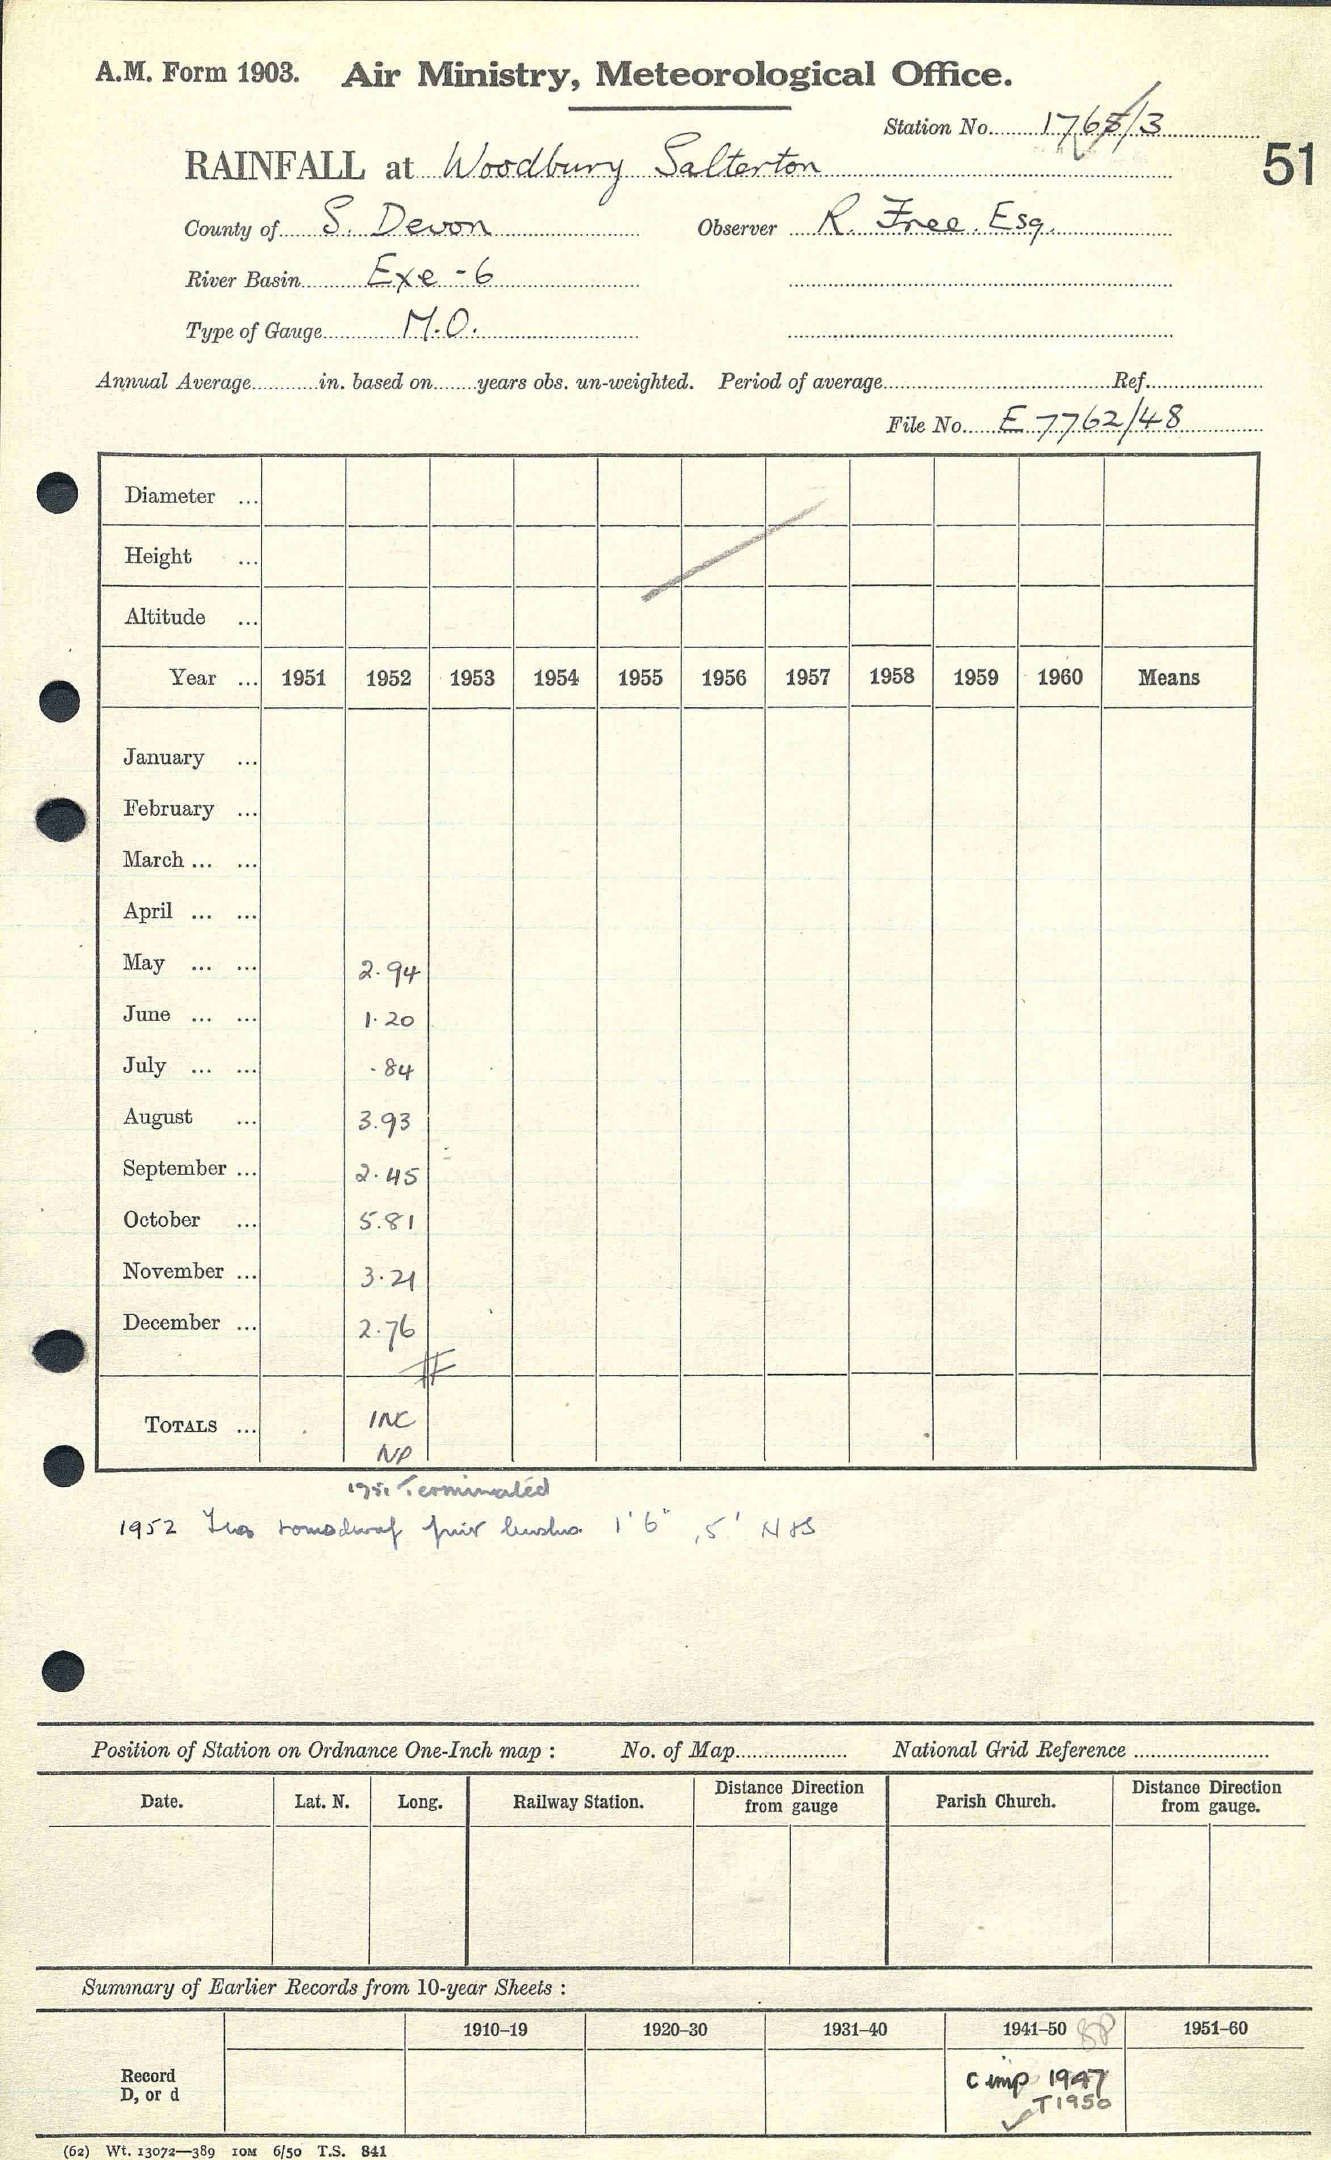 A.M. Form 1903. Air Ministry, Meteorological Office.
Station No. 1768/3
51
RAINFALL at Woodbury Salterton
County of S. Devon Observer R. Free. Esq.
River Basin Exe - 6
Type of Gauge M.O.
Annual Average in. based on years obs. un-weighted. Period of average Ref.
File No. E 7762/48
Diameter ...
Height ...
Altitude ...
Year ... 1951 1952 1953 1954 1955 1956 1957 1958 1959 1960 Means
January ...
February ...
March ... ...
April ... ...
May ... ... 2.94
June ... ... 1.20
July ... ... .84
August ... 3.93
September ... 2.45
October ... 5.81
November ... 3.21
December ... 2.76
TOTALS ... INC
NP
1951 Terminated
1952 Two 1'6", 5' N &S
Position of Station on Ordnance One-Inch map : No. of Map National Grid Reference
Date. Lat. N. Long. Railway Station. Distance Direction from gauge Parish Church. Distance Direction from gauge.
Summary of Earlier Records from 10-year Sheets :
1910–19 1920–30 1931–40 1941–50 1951–60
Record
D, or d
c imp 1947
T1950
(62) Wt. 13072—389 10M 6/50 T.S. 841